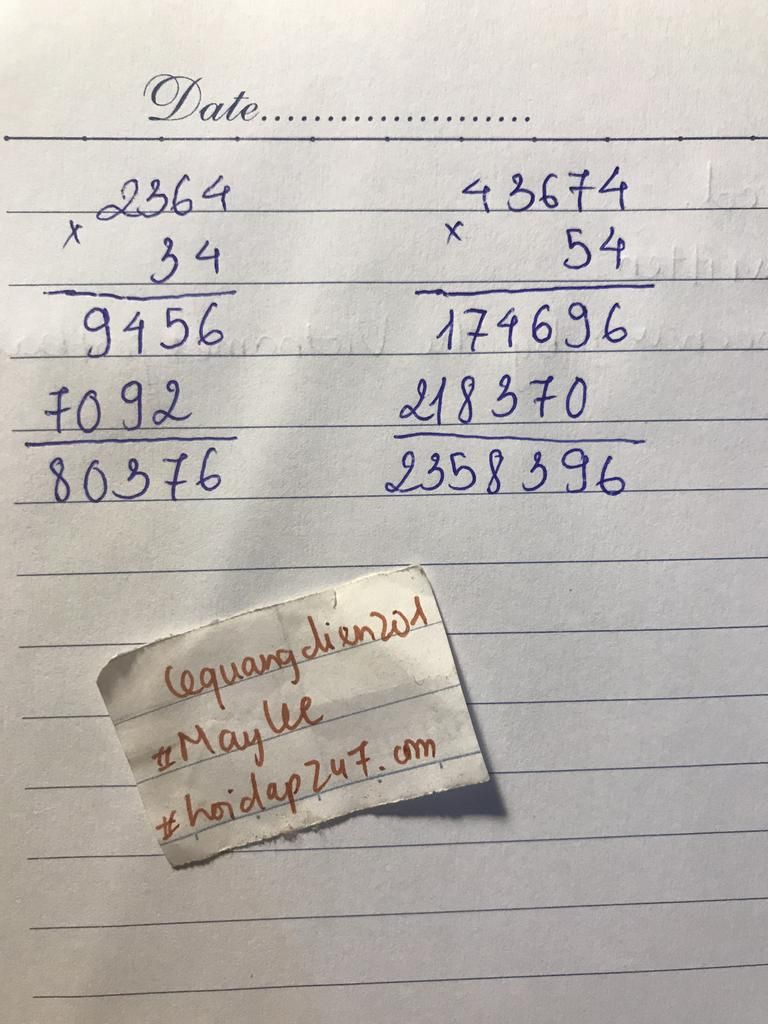 Date.....................
2364
x
34
9456
7092
80376
43674
x
54
174696
218370
2358396
lequangdien201
#MayLee
#hoidap247.com